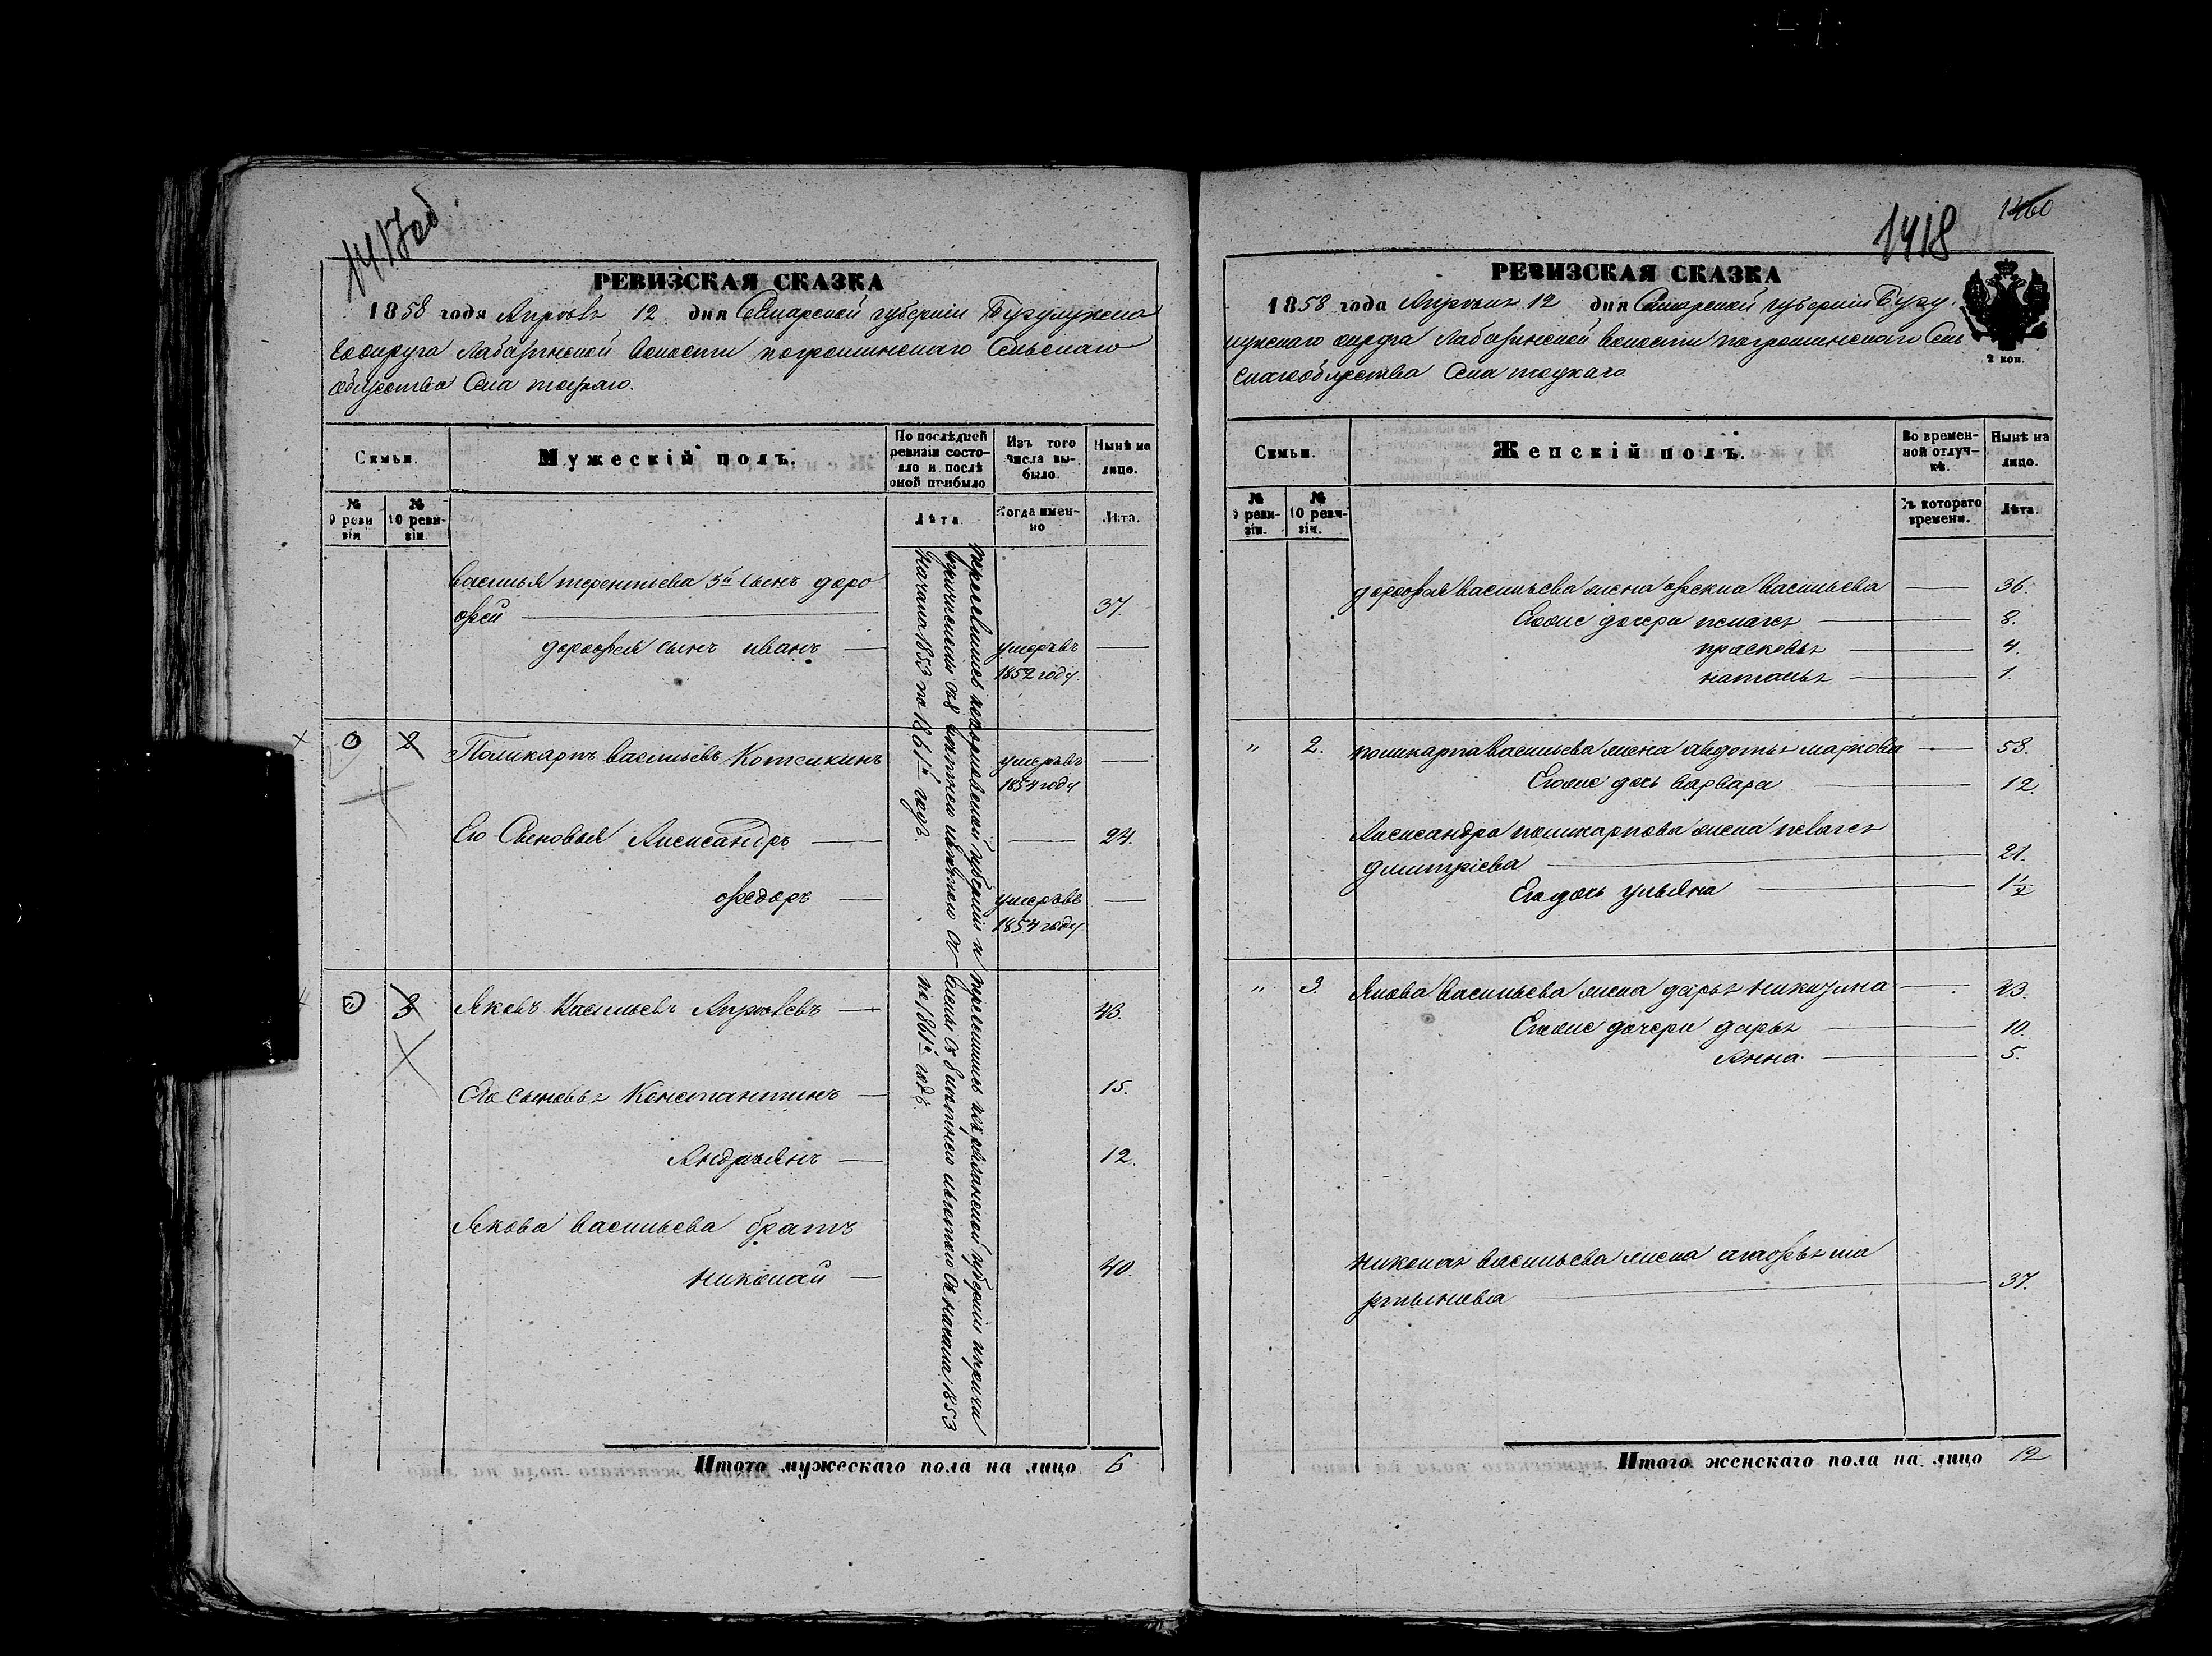 1417об
РЕВИЗСКАЯ СКАЗКА
1858 года Апрѣля 12 дня Самарской губерніи Бузулукска
го округа Лабазинской волости погроминскаго Сельскаго
общества Села тоцкаго.
Семьи.
Мужескій полъ.
По послѣдней ревизіи состояло и послѣ оной прибыло
Изъ того числа выбыло.
Нынѣ на лицо.
№ 9 ревизіи
№ 10 ревизіи.
Лѣта.
Когда именно
Лѣта.
василья терентьева 3й сынъ доро
фей
37.
дорофея сынъ иванъ
умеръ въ
1852 году.
2
Поликарпъ васильевъ
умеръ въ
1854 году
Его Сыновья Александръ — 24.
федоръ
умеръ въ
1854 году
3
Яковъ Васильевъ
43.
Его сыновья Константинъ — 15.
Андреянъ — 12.
Якова васильева братъ
николай — 40.
переселились
губерніи и
съ начала 1853 по 1861й годъ.
переселились
губерніи
съ начала 1853
по 1861й годъ.
Итого мужескаго пола на лицо 6
1418
1460
РЕВИЗСКАЯ СКАЗКА
2 коп.
1858 года Апрѣля 12 дня Самарской губерніи Бузу
лукскаго округа Лабазинской волости погроминскаго Сель
скаго общества Села тоцкаго.
Семьи.
Женскій полъ.
Во временной отлучкѣ.
Нынѣ на лицо.
№ 9 ревизіи.
№ 10 ревизіи.
Съ котораго времени.
Лѣта.
дорофея васильева жена фекла васильева — 36.
Его же дочери пелагея — 8.
прасковья — 4.
наталья — 1.
" 2. поликарпа васильева жена авдотья маркова — 58.
Его же дочь варвара — 12.
Александра поликарпова жена пелагея
дмитріева — 21.
Его дочь ульяна — 1½
" 3. Якова васильева жена дарья никитина — 43.
Его же дочери дарья — 10.
Анна — 5.
николая васильева жена агафья ма
ртынова — 37.
Итого женскаго пола на лицо 12